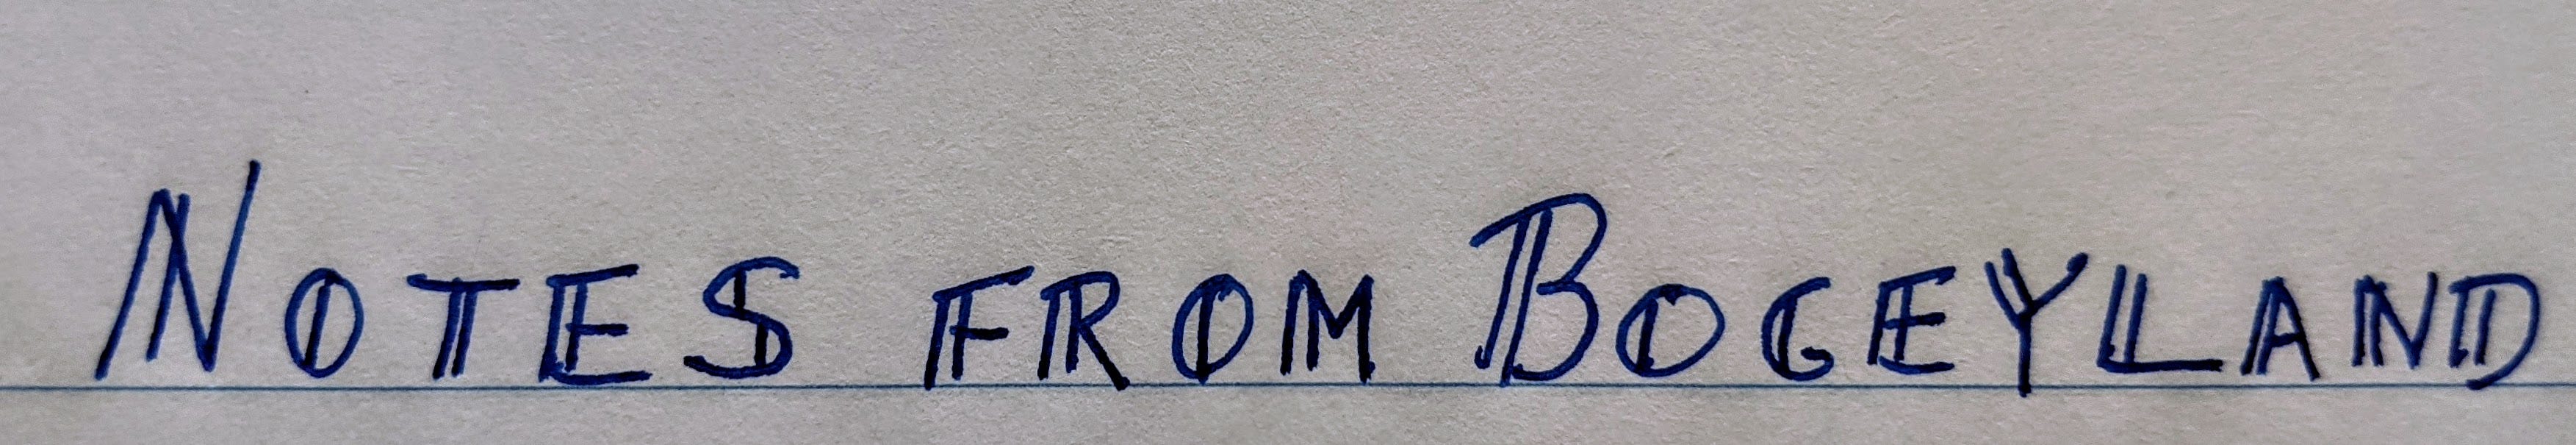 Notes from Bogeyland